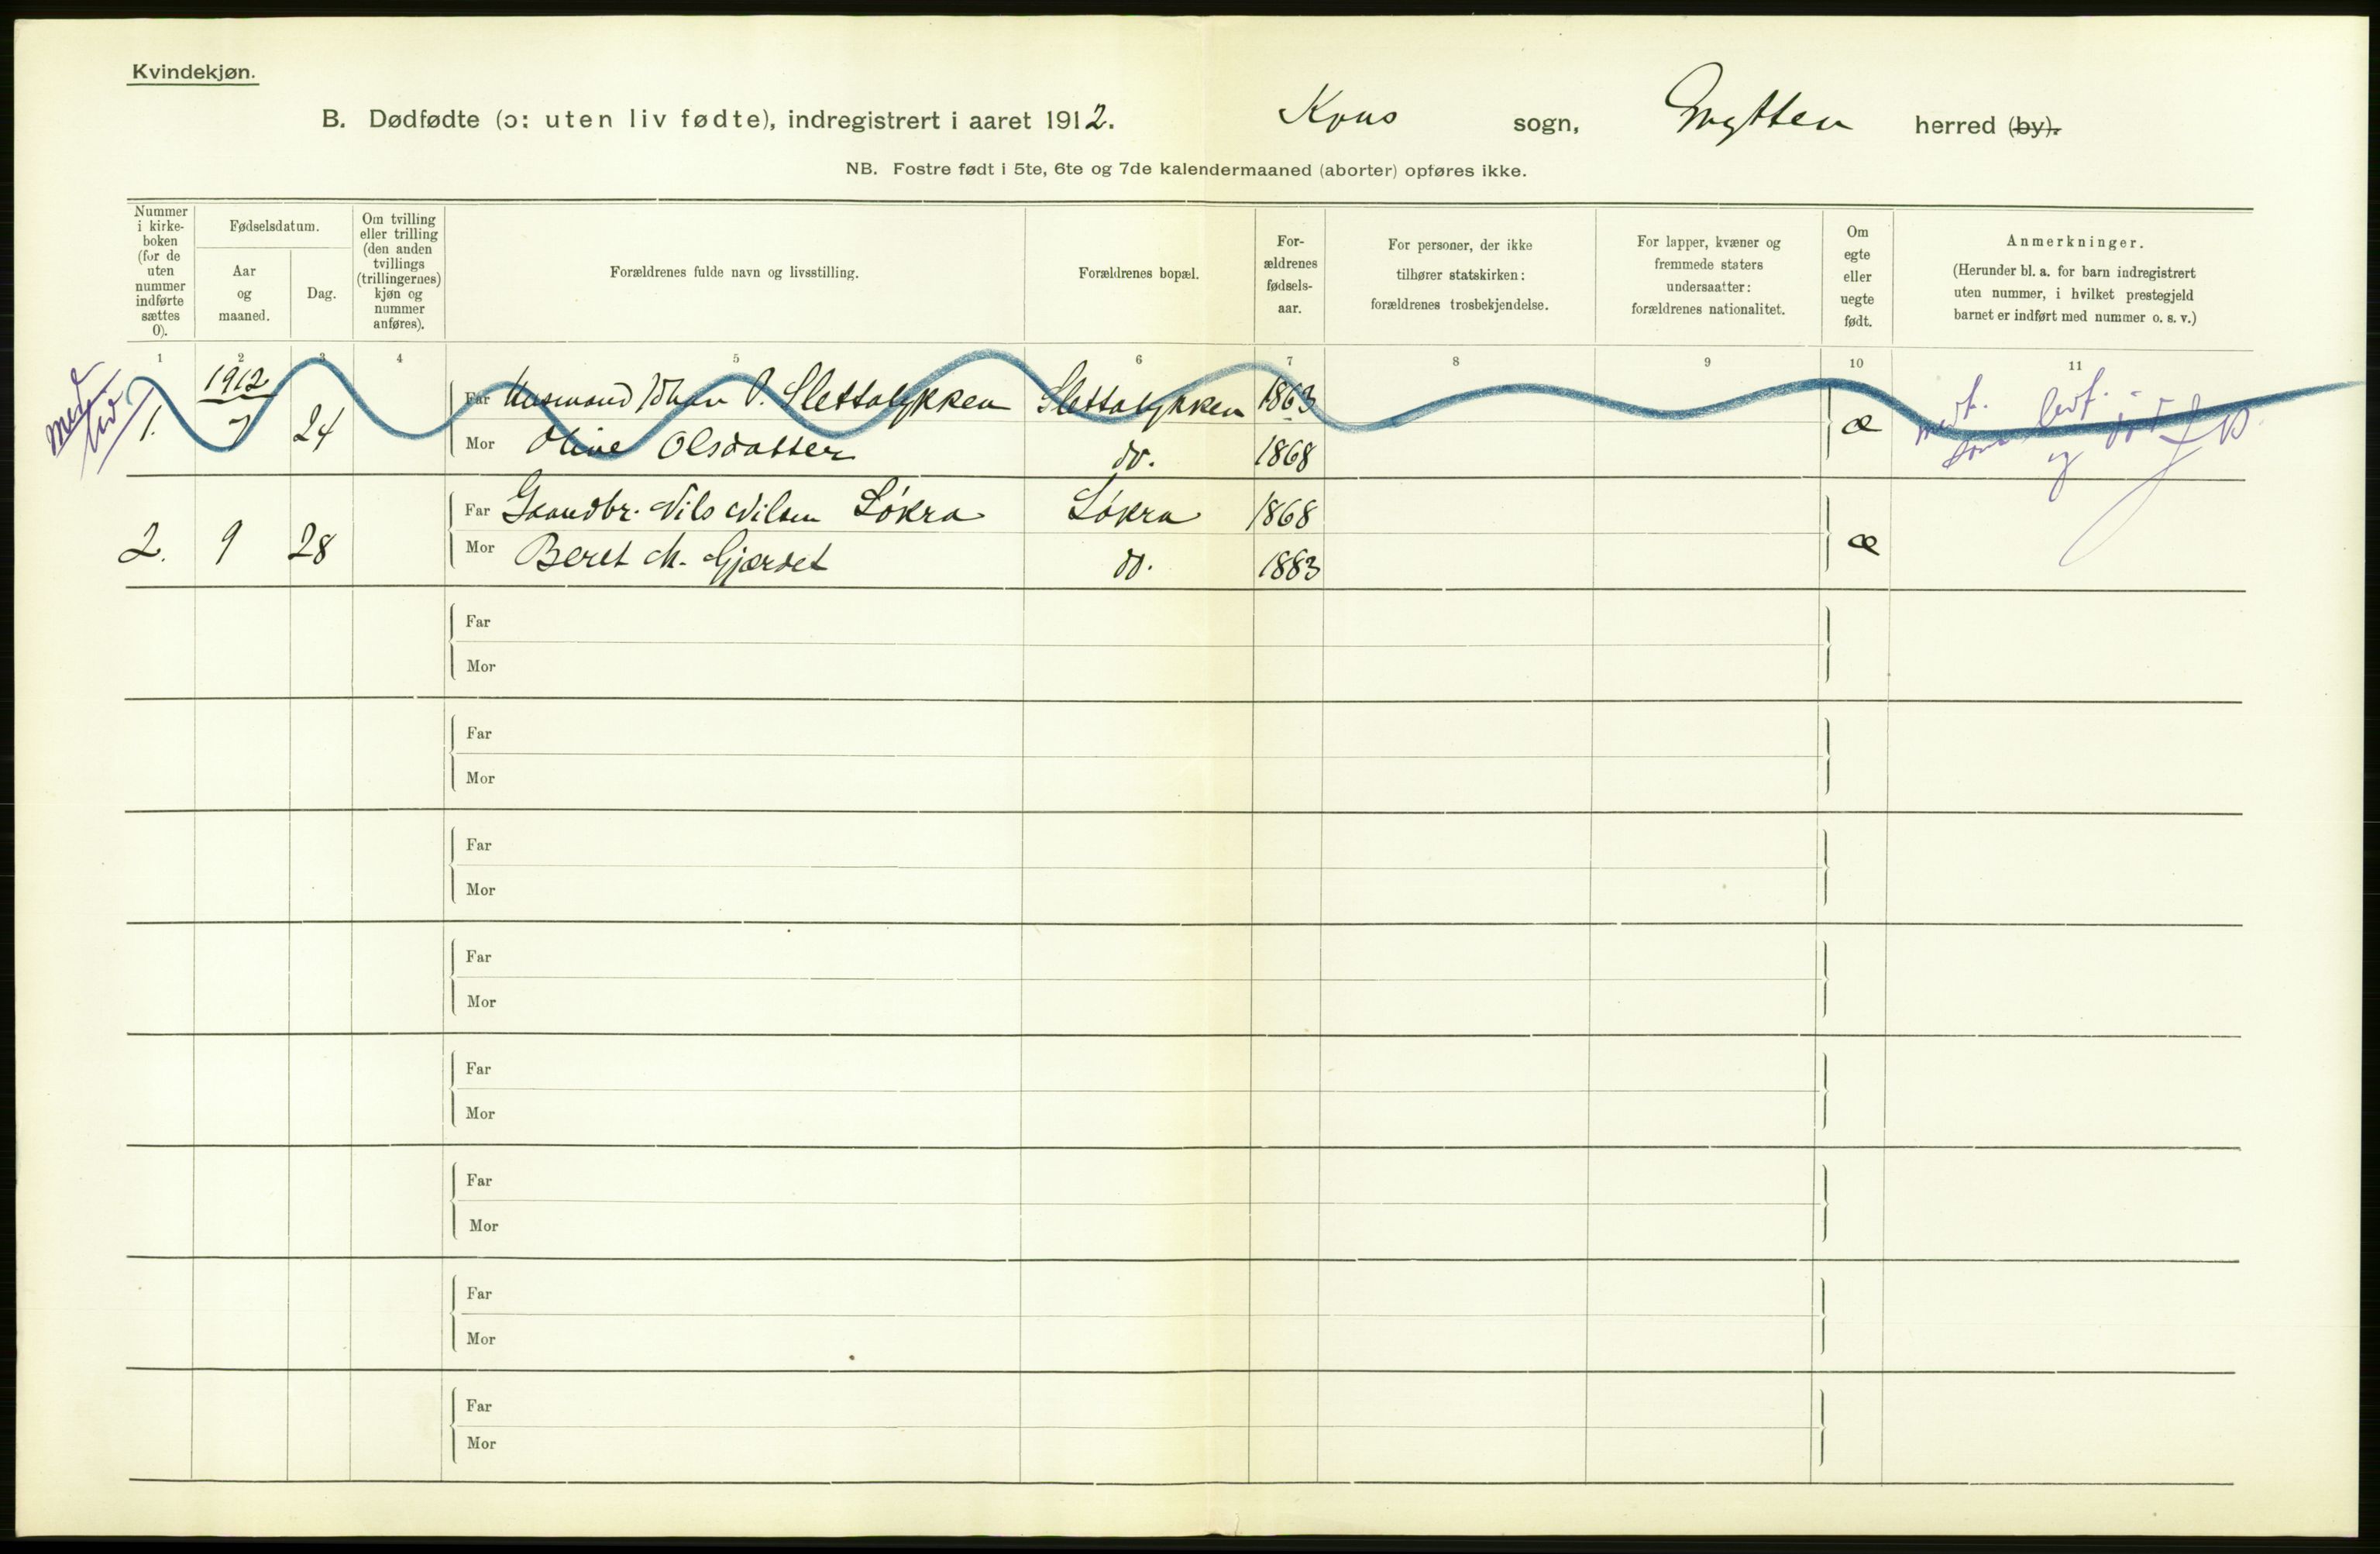 Kvindekjøn.
B. Dødfødte (ɔ: uten liv fødte), indregistrert i aaret 1912. Kvus sogn, Mytten herred (by).
NB. Fostre født i 5te, 6te og 7de kalendermaaned (aborter) opføres ikke.
Nummer i kirke-boken (for de uten nummer indførte sættes 0).
Fødselsdatum.
Aar og maaned.
Dag.
Om tvilling eller trilling (den anden tvillings (trillingernes) kjøn og nummer anføres).
Forældrenes fulde navn og livsstilling.
Forældrenes bopæl.
For-ældrenes fødsels-aar.
For personer, der ikke tilhører statskirken: forældrenes trosbekjendelse.
For lapper, kvæner og fremmede staters undersaatter: forældrenes nationalitet.
Om egte eller uegte født.
Anmerkninger.
(Herunder bl. a. for barn indregistrert uten nummer, i hvilket prestegjeld barnet er indført med nummer o. s. v.)
1 2 3 4 5 6 7 8 9 10 11
1912
1. 7 24 Far Husmand Johan P. Slettalykken Slettalykken 1863 æ
Mor Oline Olsdatter do. 1868
2. 9 28 Far Gaardbr. Nils Nilsen Løkra Løkra 1868 æ
Mor Beret M. Gjærdet do. 1883
Far
Mor
Far
Mor
Far
Mor
Far
Mor
Far
Mor
Far
Mor
Far
Mor
Far
Mor